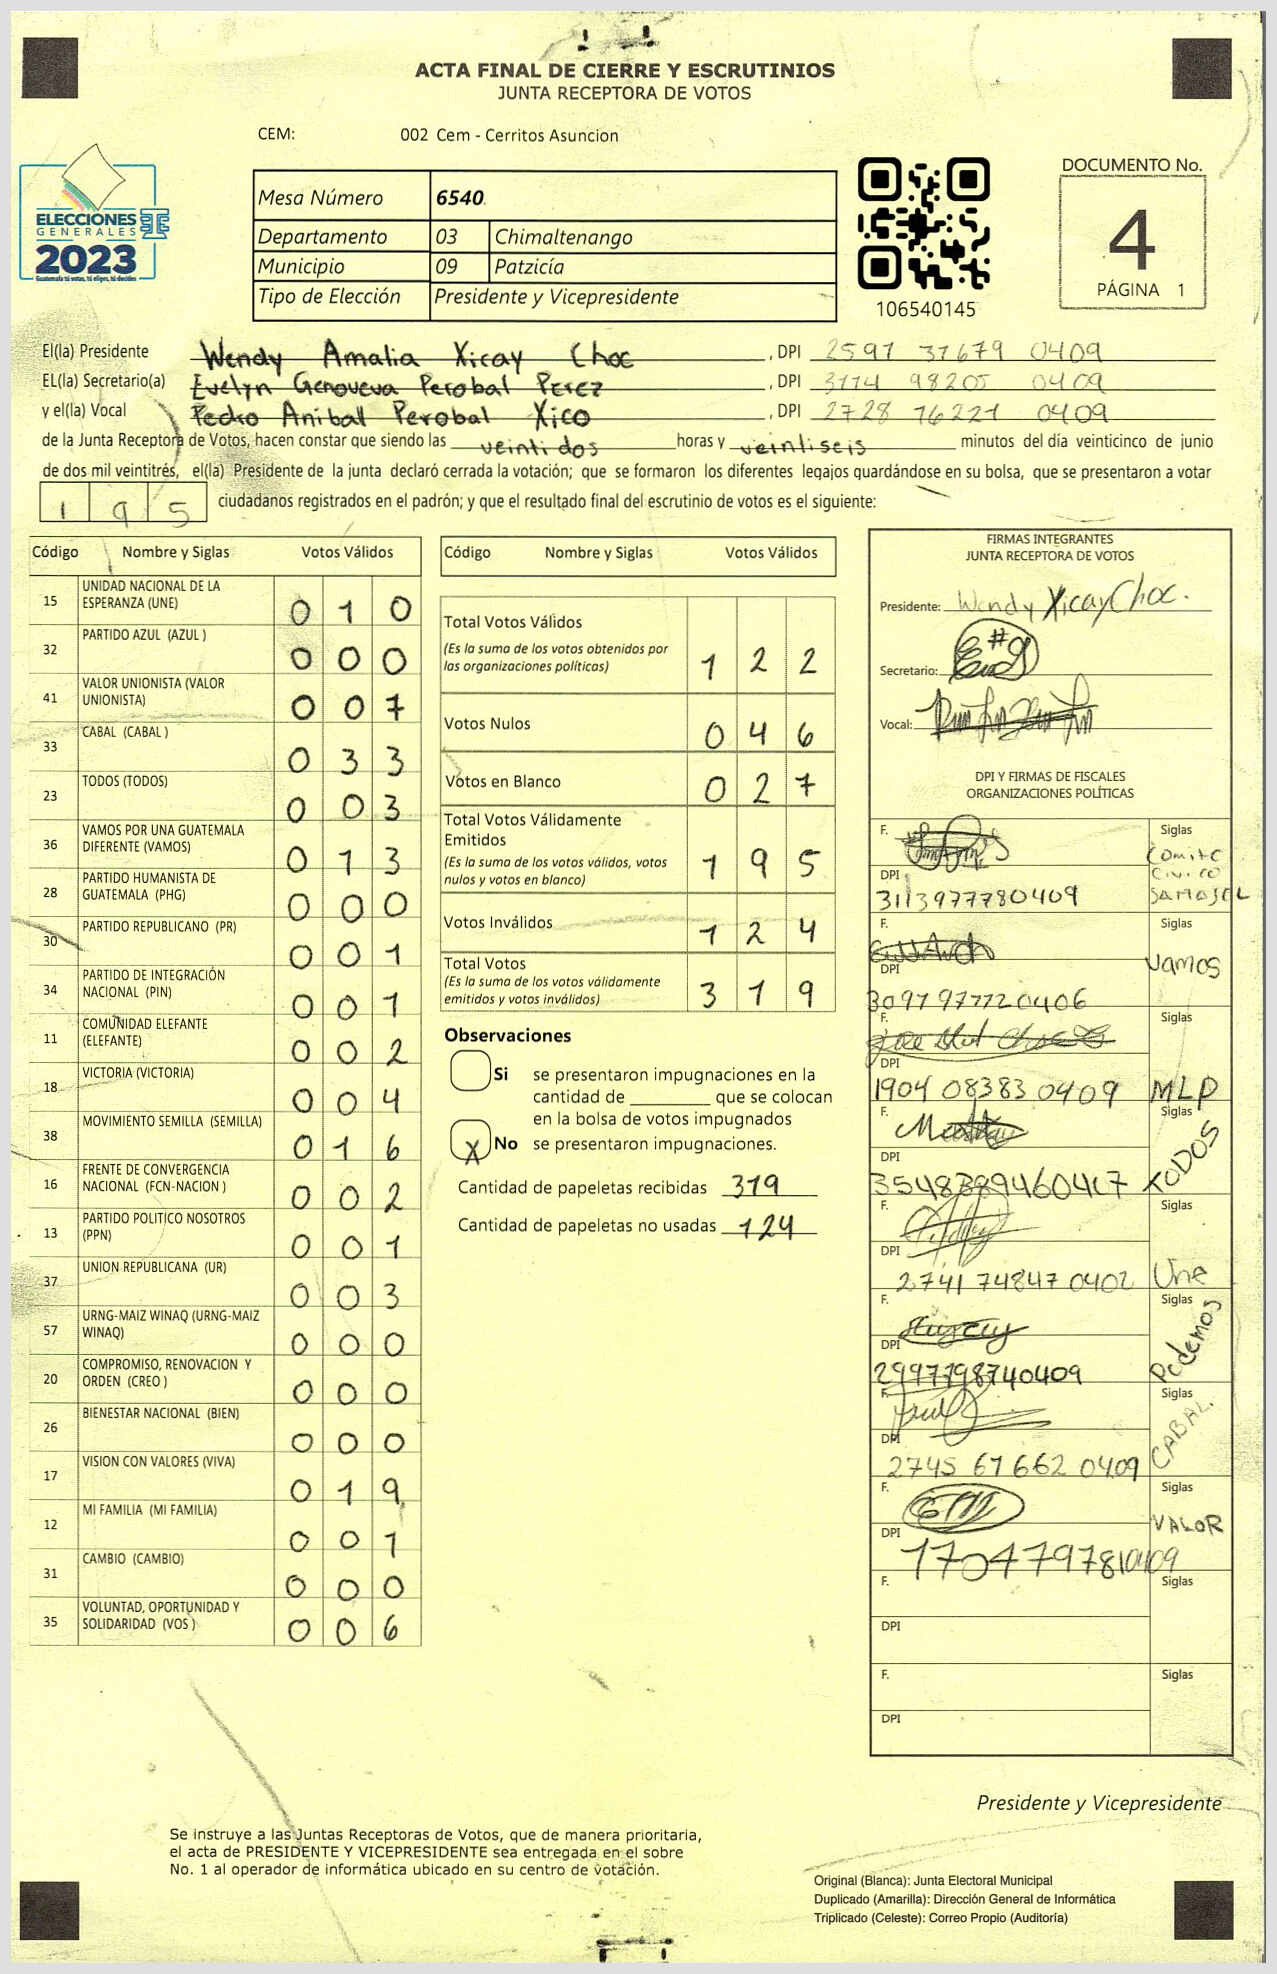 ACTA FINAL DE CIERRE Y ESCRUTINIOS
JUNTA RECEPTORA DE VOTOS
CEM: 002 Cem - Cerritos Asuncion
ELECCIONES
GENERALES
2023
Guatemala tú votas, tú eliges, tú decides
Mesa Número 6540
Departamento 03 Chimaltenango
Municipio 09 Patzicía
Tipo de Elección Presidente y Vicepresidente
106540145
DOCUMENTO No.
4
PÁGINA 1
El(la) Presidente Wendy Amalia Xicay Choc , DPI 2597 37679 0409
EL(la) Secretario(a) Evelyn Genoveva Perobal Perez , DPI 3114 98205 0409
y el(la) Vocal Pedro Anibal Perobal Xico , DPI 2728 76221 0409
de la Junta Receptora de Votos, hacen constar que siendo las veintidos horas y veintiseis minutos del día veinticinco de junio
de dos mil veintitrés, el(la) Presidente de la junta declaró cerrada la votación; que se formaron los diferentes legajos guardándose en su bolsa, que se presentaron a votar
195 ciudadanos registrados en el padrón; y que el resultado final del escrutinio de votos es el siguiente:
Código Nombre y Siglas Votos Válidos
15 UNIDAD NACIONAL DE LA
ESPERANZA (UNE) 0 1 0
32 PARTIDO AZUL (AZUL ) 0 0 0
41 VALOR UNIONISTA (VALOR
UNIONISTA) 0 0 7
33 CABAL (CABAL ) 0 3 3
23 TODOS (TODOS) 0 0 3
36 VAMOS POR UNA GUATEMALA
DIFERENTE (VAMOS) 0 1 3
28 PARTIDO HUMANISTA DE
GUATEMALA (PHG) 0 0 0
30 PARTIDO REPUBLICANO (PR) 0 0 1
34 PARTIDO DE INTEGRACIÓN
NACIONAL (PIN) 0 0 1
11 COMUNIDAD ELEFANTE
(ELEFANTE) 0 0 2
18 VICTORIA (VICTORIA) 0 0 4
38 MOVIMIENTO SEMILLA (SEMILLA) 0 1 6
16 FRENTE DE CONVERGENCIA
NACIONAL (FCN-NACION ) 0 0 2
13 PARTIDO POLITICO NOSOTROS
(PPN) 0 0 1
37 UNION REPUBLICANA (UR) 0 0 3
57 URNG-MAIZ WINAQ (URNG-MAIZ
WINAQ) 0 0 0
20 COMPROMISO, RENOVACION Y
ORDEN (CREO ) 0 0 0
26 BIENESTAR NACIONAL (BIEN) 0 0 0
17 VISION CON VALORES (VIVA) 0 1 9
12 MI FAMILIA (MI FAMILIA) 0 0 1
31 CAMBIO (CAMBIO) 0 0 0
35 VOLUNTAD, OPORTUNIDAD Y
SOLIDARIDAD (VOS ) 0 0 6
Código Nombre y Siglas Votos Válidos
Total Votos Válidos
(Es la suma de los votos obtenidos por
las organizaciones políticas) 1 2 2
Votos Nulos 0 4 6
Votos en Blanco 0 2 7
Total Votos Válidamente
Emitidos
(Es la suma de los votos válidos, votos
nulos y votos en blanco) 1 9 5
Votos Inválidos 1 2 4
Total Votos
(Es la suma de los votos válidamente
emitidos y votos inválidos) 3 1 9
Observaciones
Si se presentaron impugnaciones en la
cantidad de ________ que se colocan
en la bolsa de votos impugnados
X No se presentaron impugnaciones.
Cantidad de papeletas recibidas 319
Cantidad de papeletas no usadas 124
FIRMAS INTEGRANTES
JUNTA RECEPTORA DE VOTOS
Presidente: Wendy Xicay Choc.
Secretario:
Vocal:
DPI Y FIRMAS DE FISCALES
ORGANIZACIONES POLÍTICAS
F. Siglas
Comite
Civico
SAMAJEL
DPI
3113977780409
F. Siglas
Vamos
DPI
3097977720406
F. Siglas
DPI
1904 08383 0409 MLP
F. Siglas
TODOS
DPI
3548389460417
F. Siglas
DPI
2741 74847 0402 Une
F. Siglas
Podemos
DPI
2997798740409
F. Siglas
CABAL.
DPI
2745 67662 0409
F. Siglas
VALOR
DPI
1704797810409
F. Siglas
DPI
F. Siglas
DPI
Presidente y Vicepresidente
Se instruye a las Juntas Receptoras de Votos, que de manera prioritaria,
el acta de PRESIDENTE Y VICEPRESIDENTE sea entregada en el sobre
No. 1 al operador de informática ubicado en su centro de votación.
Original (Blanca): Junta Electoral Municipal
Duplicado (Amarilla): Dirección General de Informática
Triplicado (Celeste): Correo Propio (Auditoría)